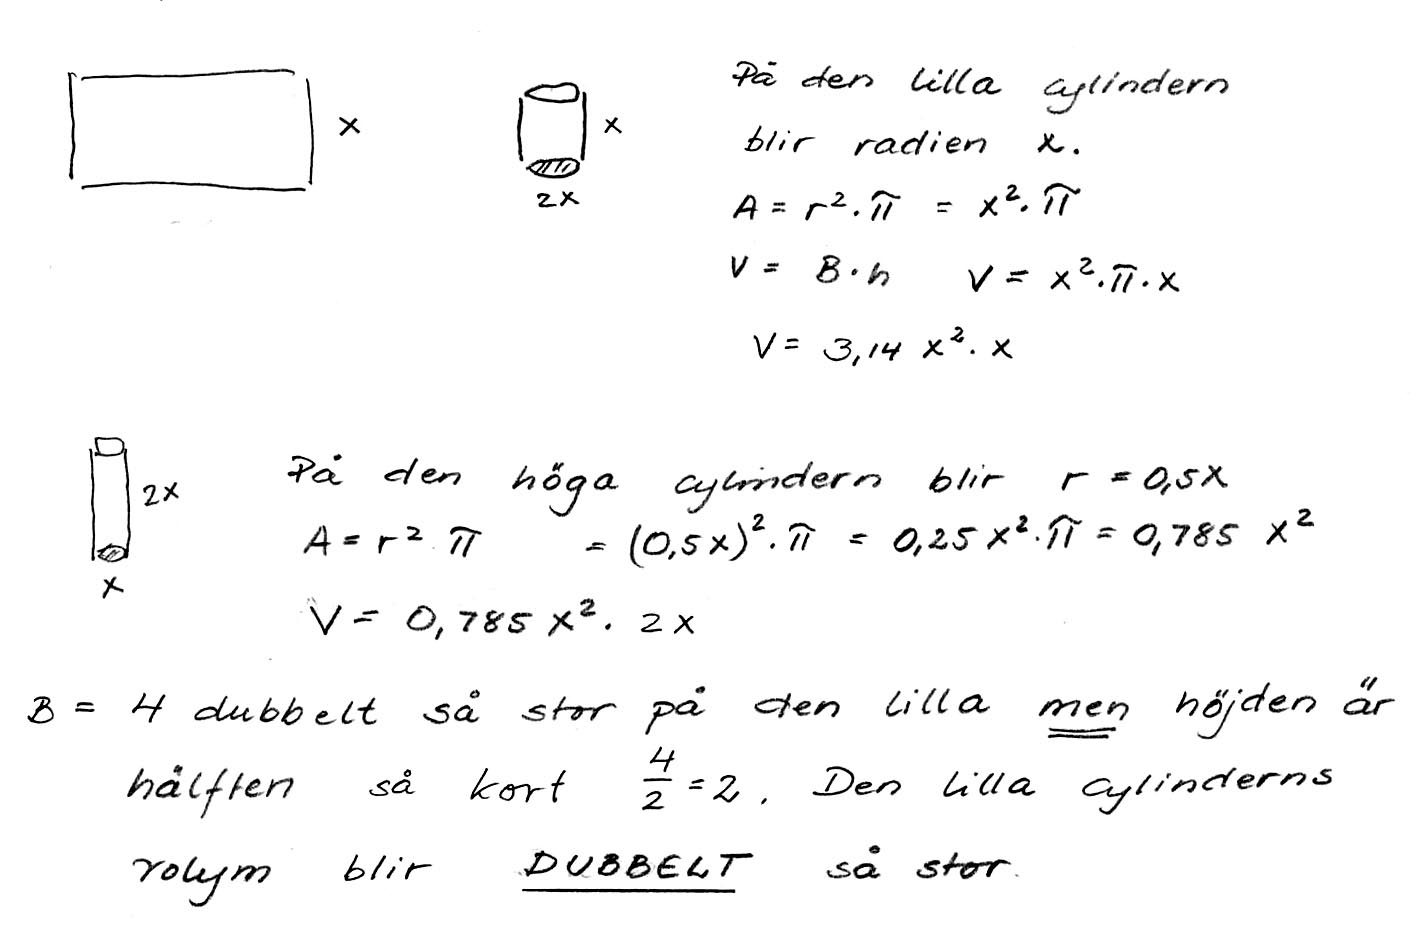 x
x
2x
På den lilla cylindern
blir radien x.
A = r². π = x². π
V = B · h V = x².π. x
V = 3,14 x². x
2x
x
På den höga cylindern blir r = 0,5x
A = r² π = (0,5x)². π = 0,25 x². π = 0,785 x²
V = 0,785 x². 2x
B = 4 dubbelt så stor på den lilla men höjden är
hälften så kort 4/2 = 2. Den lilla cylinderns
volym blir DUBBELT så stor.